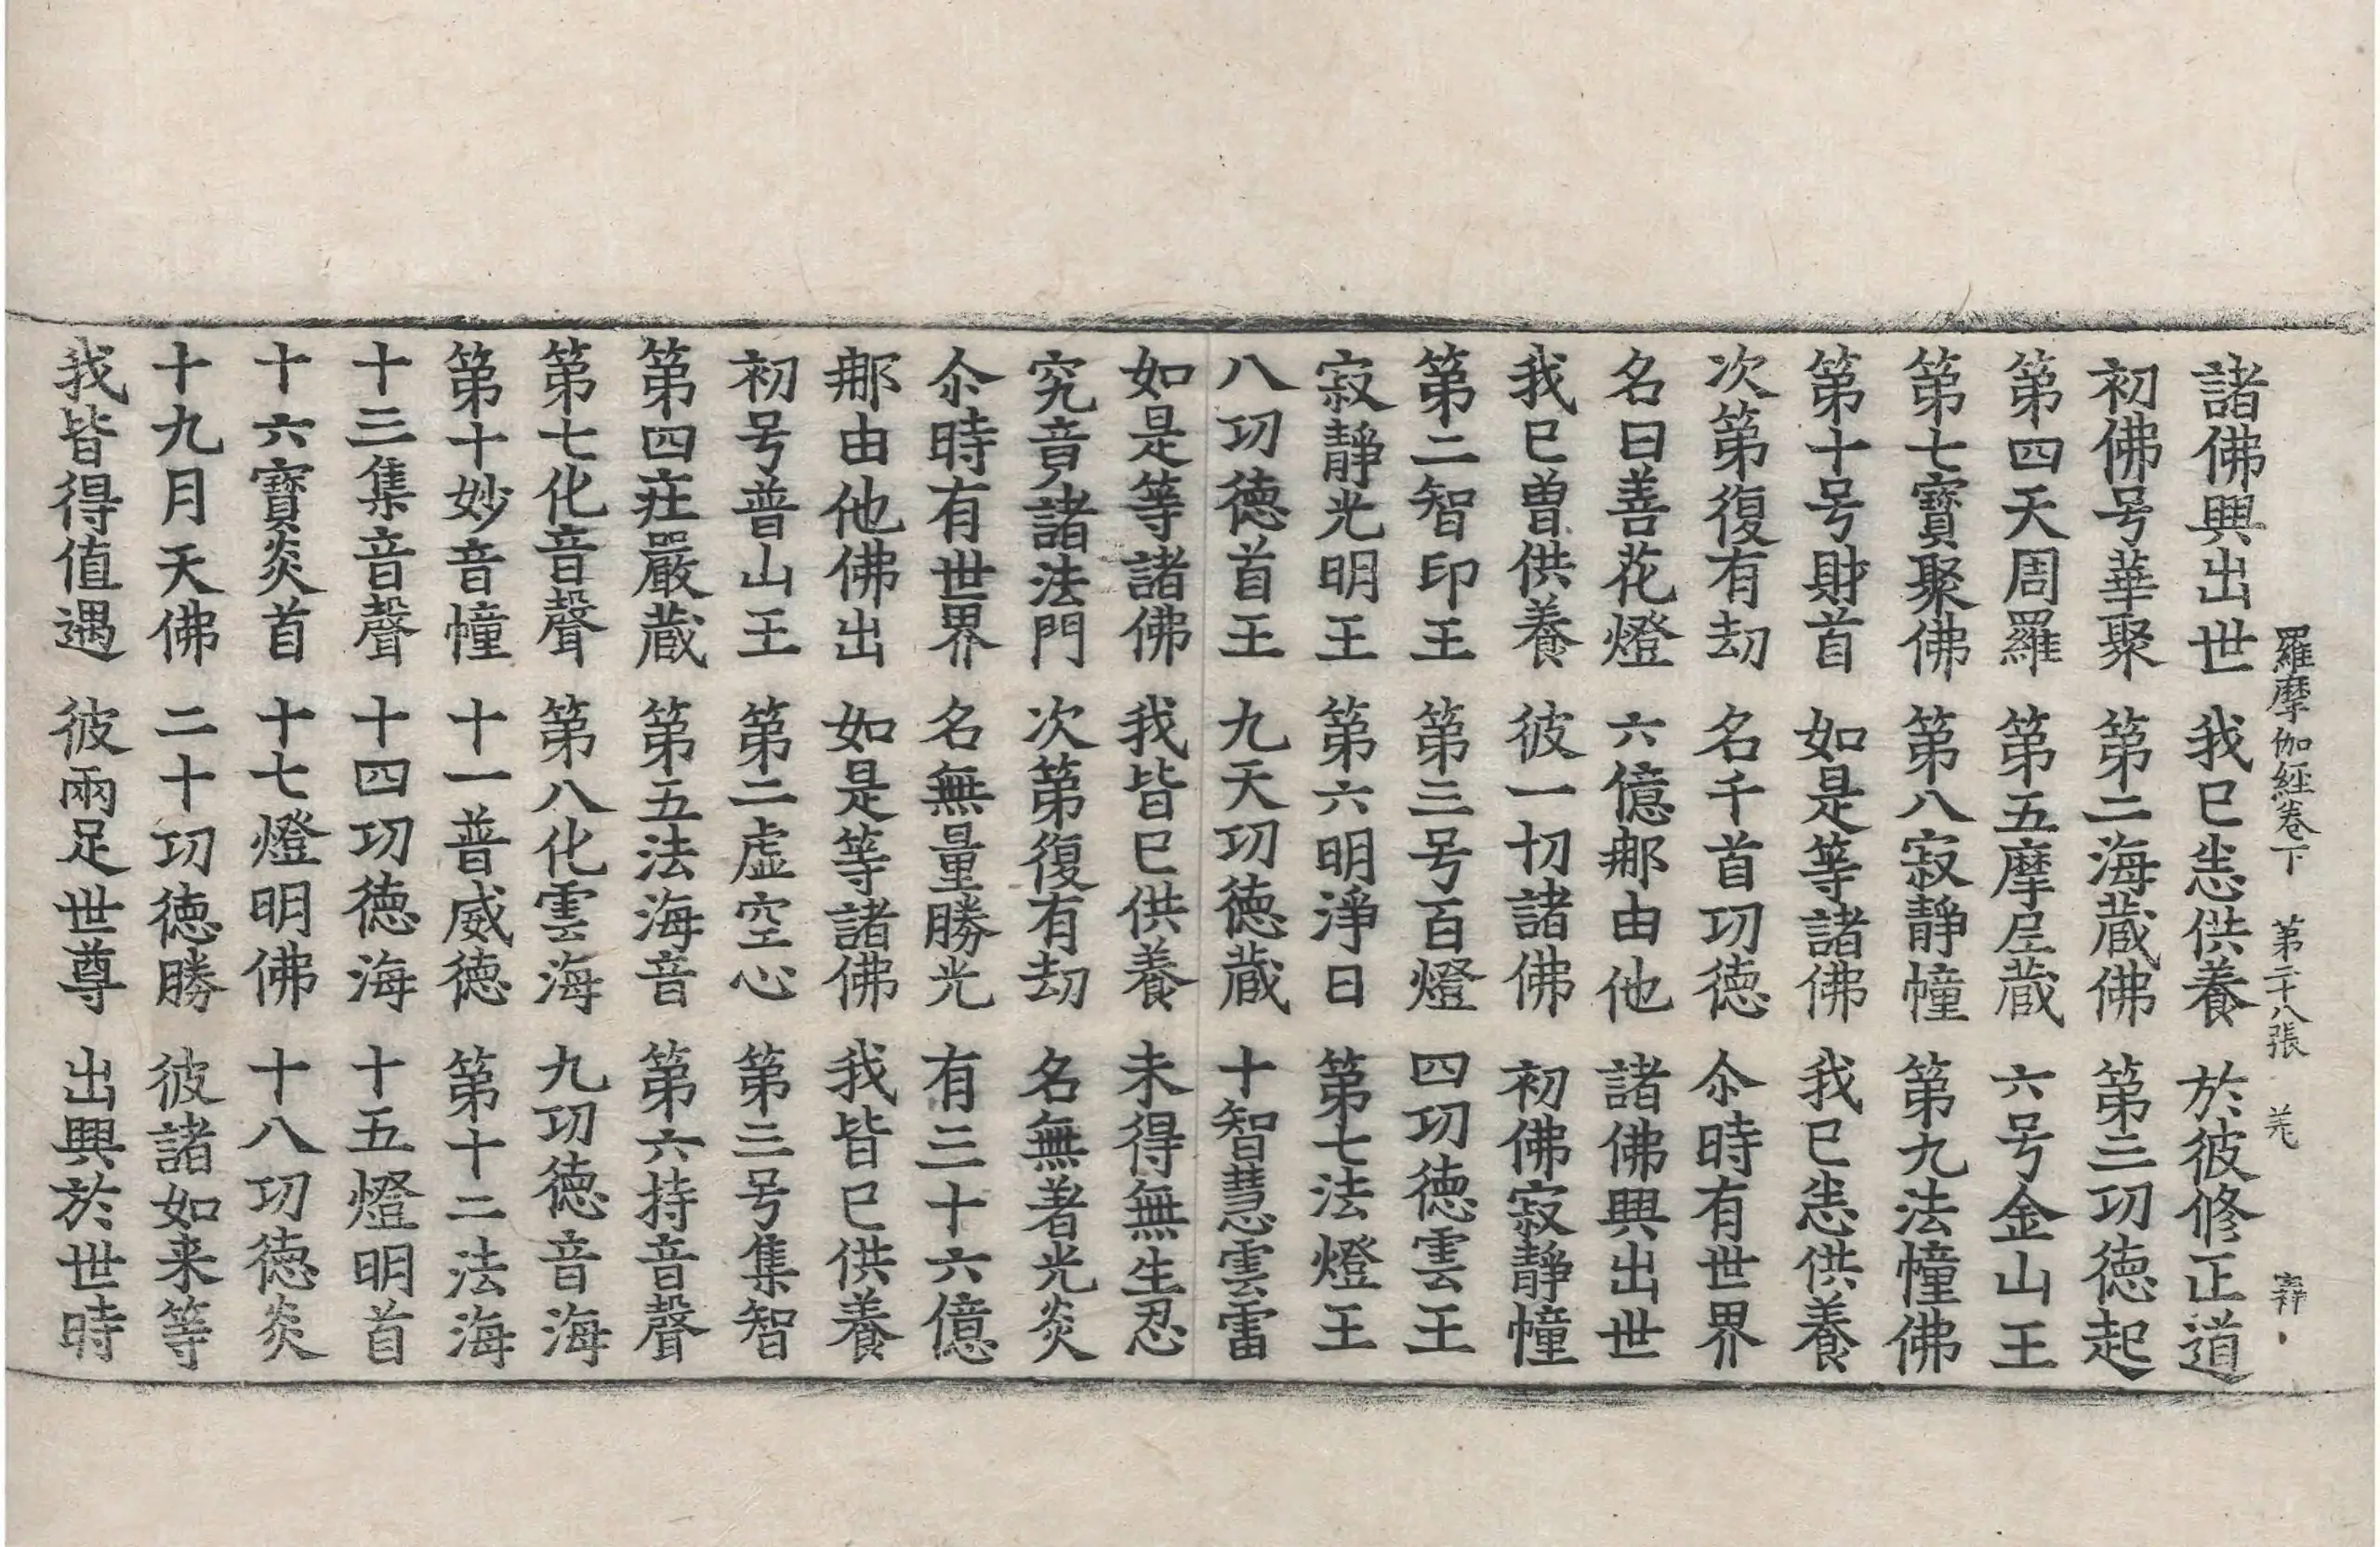 羅摩伽經卷下　第二十八張　羌　
諸佛興出世　我已悉供養　於彼修正道
初佛号華聚　第二海藏佛　第三功德起
第四天周羅　第五摩尼藏　六号金山王
第七寶聚佛　第八寂靜幢　第九法幢佛
第十号財首　如是等諸佛　我已悉供養
次第復有劫　名千首功德　尒時有世界
名曰善花燈　六億那由他　諸佛興出世
我已曾供養　彼一切諸佛　初佛寂靜幢
第二智印王　第三号百燈　四功德雲王
寂靜光明王　第六明淨日　第七法燈王
八功德首王　九天功德藏　十智慧雲雷
如是等諸佛　我皆已供養　未得無生忍
究竟諸法門　次第復有劫　名無著光炎
尒時有世界　名無量勝光　有三十六億
那由他佛出　如是等諸佛　我皆已供養
初号普山王　第二虛空心　第三号集智
第四莊嚴藏　第五法海音　第六持音聲
第七化音聲　第八化雲海　九功德音海
第十妙音幢　十一普威德　第十二法海
十三集音聲　十四功德海　十五燈明首
十六寶炎首　十七燈明佛　十八功德炎
十九月天佛　二十功德勝　彼諸如来等
我皆得值遇　彼兩足世尊　出興於世時